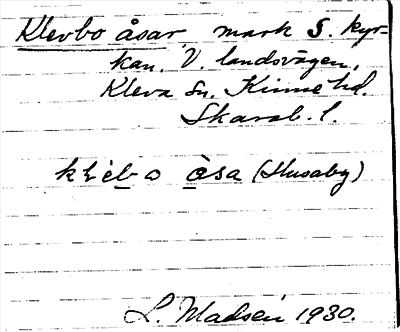 Klevbo åsar, mark S. kyr-
kan. V. landsvägen,
Kleva sn. Kinne hd.
Skarab. l.
klèbo òsa (Husaby)
L. Madsén 1930.